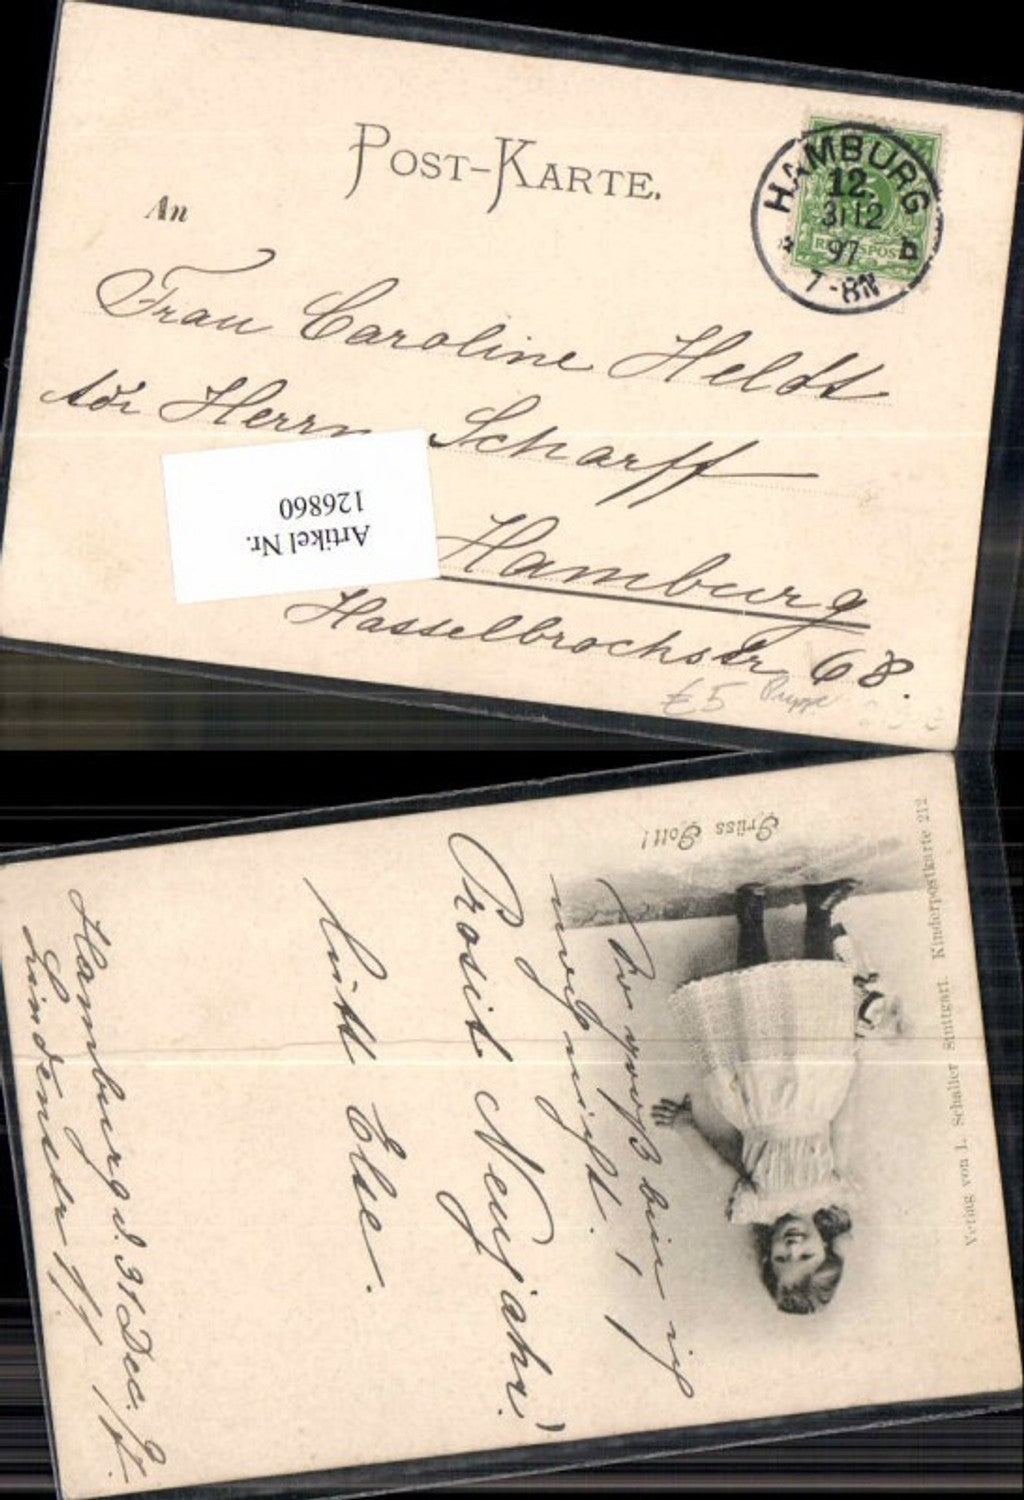 POST-KARTE.
An
HAMBURG
12.
31 12
97
7-8N
b
REICHSPOST
Frau Caroline Heldt
adr Herrn Scharff
Hamburg
Hasselbrookstr 68.
€5 Puppe
Artikel Nr.
126860
Grüss Gott!
So groß bin ich
noch nicht!
Prosit Neujahr!
lütt Else.
Hamburg d. 31 Dec. 97.
Lindenstr 11
Verlag von L. Schaller Stuttgart. Kinderpostkarte 212